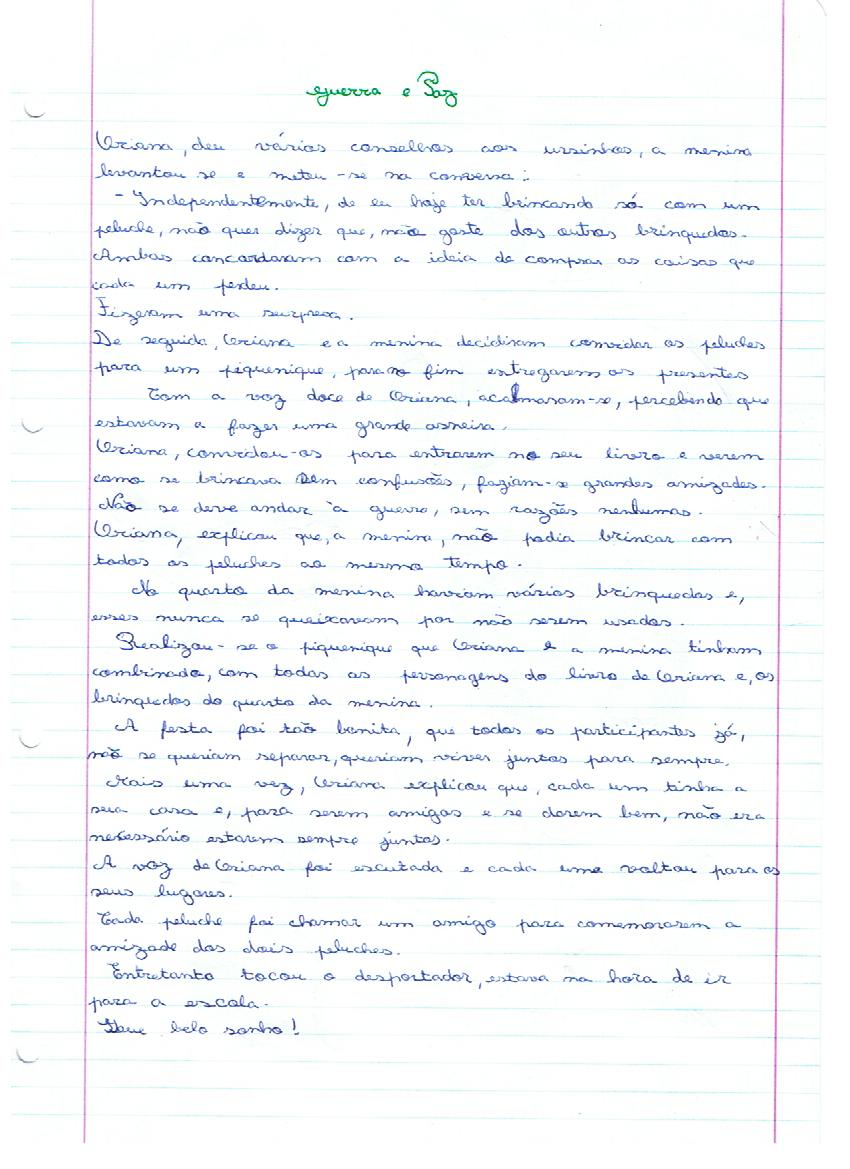 Guerra e Paz
Oriana, deu vários conselhos aos ursinhos, a menina
levantou se e meteu-se na conversa:
- Independentemente, de eu hoje ter brincando só com um
peluche, não quer dizer que, não goste dos outros brinquedos.
Ambas concordaram com a ideia de comprar as coisas que
cada um perdeu.
Fizeram uma surpresa.
De seguida, Oriana e a menina decidiram convidar os peluches
para um piquenique, para no fim entregarem os presentes
Com a voz doce de Oriana, acalmaram-se, percebendo que
estavam a fazer uma grande asneira.
Oriana, convidou-os para entrarem no seu livro e verem
como se brincava sem confusões, faziam-se grandes amizades.
Não se deve andar à guerra, sem razões nenhumas.
Oriana, explicou que, a menina, não podia brincar com
todos os peluches ao mesmo tempo.
No quarto da menina haviam vários brinquedos e,
esses nunca se queixavam por não serem usados.
Realizou-se o piquenique que Oriana e a menina tinham
combinado, com todas as personagens do livro de Oriana e, os
brinquedos do quarto da menina.
A festa foi tão bonita, que todos os participantes já,
não se queriam separar, queriam viver juntos para sempre.
Mais uma vez, Oriana explicou que, cada um tinha a
sua casa e, para serem amigos e se darem bem, não era
necessário estarem sempre juntos.
A voz de Oriana foi escutada e cada uma voltou para os
seus lugares.
Cada peluche foi chamar um amigo para comemorarem a
amizade dos dois peluches.
Entretanto tocou o despertador, estava na hora de ir
para a escola.
Que belo sonho!